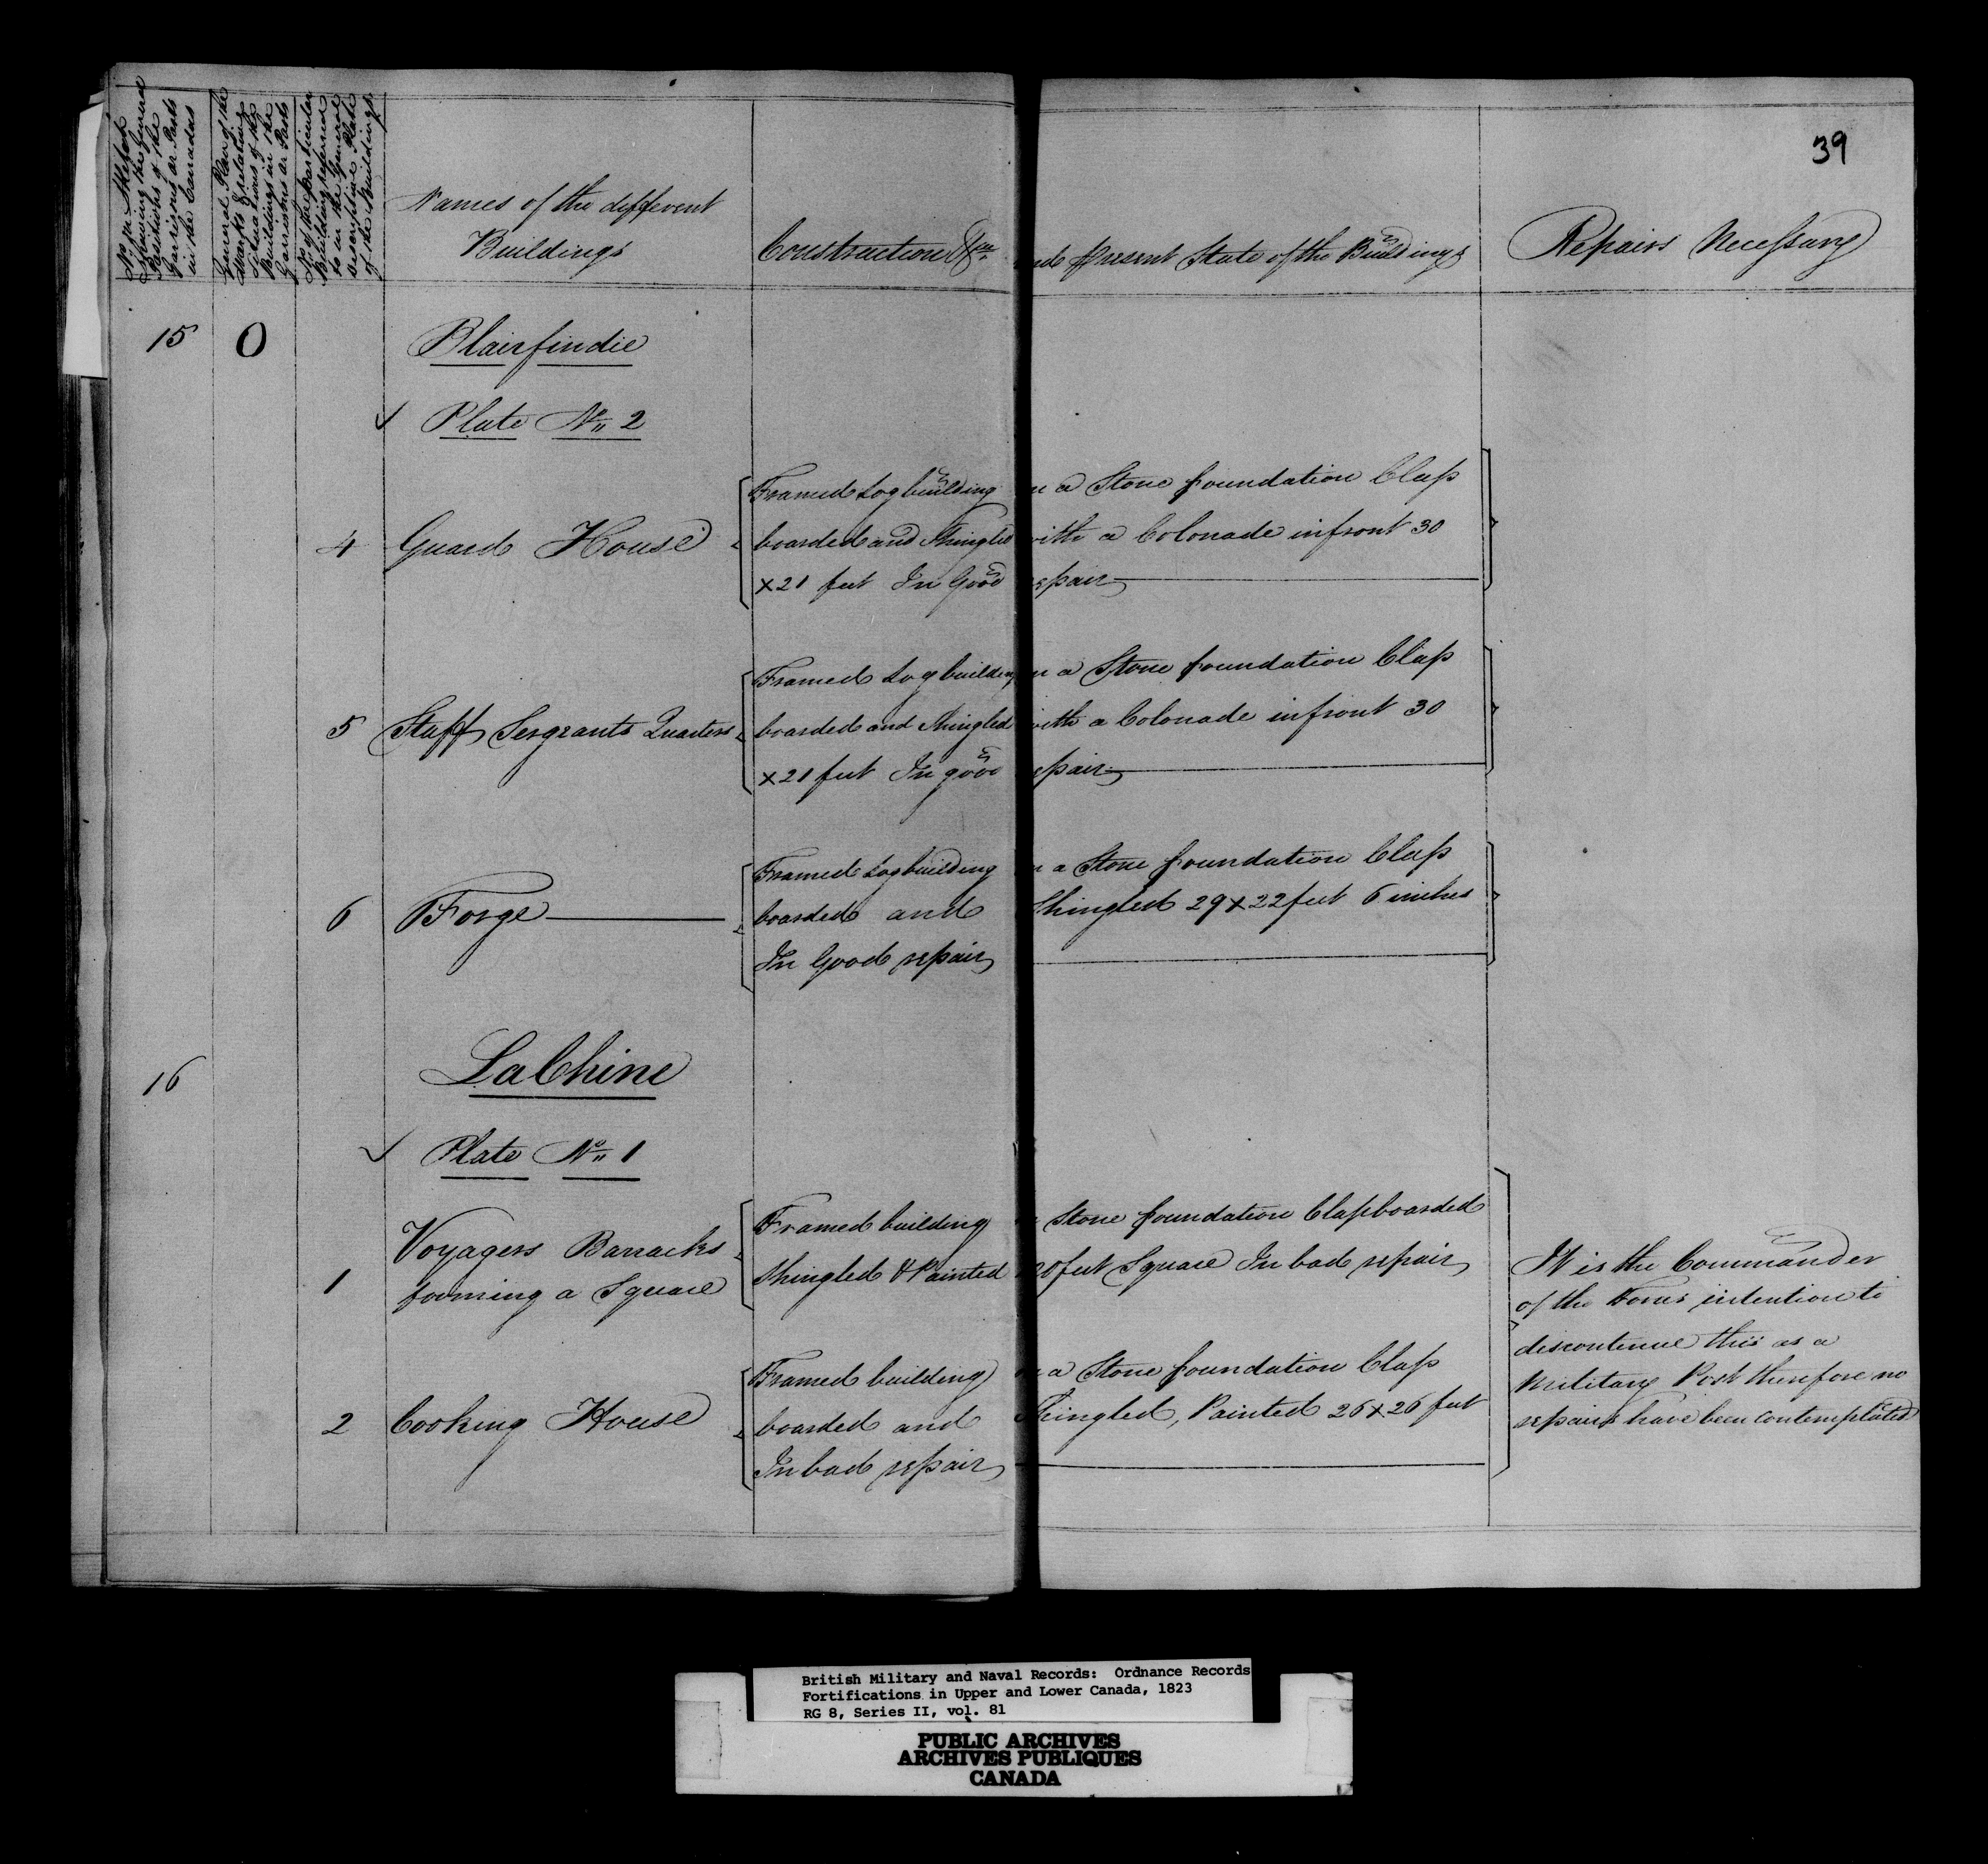 39
No. on Sketch
showing the General
Positions of the
Garrisons or Posts
in the Canadas
General Plan of the
Works & relating
Situations of the
Buildings in the
Garrisons or Posts
No. of the particular
Building referred
to in the General
descriptive Plate
of the Buildings
Names of the different
Buildings
Construction &ca and Present State of the Buildings
Repairs Necessary
15 O Blairfindie
Plate No. 2
Framed Log building on a Stone foundation Clap
4 Guard House boarded and Shingled with a Colonade infront 30
x 21 feet In Good repair
Framed Log building on a Stone foundation Clap
5 Staff Sergeants Quarters boarded and Shingled with a Colonade infront 30
x 21 feet In good repair
Framed Log building on a Stone foundation Clap
6 Forge boarded and Shingled 29 x 22 feet 6 inches
In Good repair
16 LaChine
Plate No. 1
Voyagers Barracks Framed building Stone foundation Clapboarded
1 forming a Square Shingled & Painted feet Square In bad repair
Framed building on a Stone foundation Clap
2 Cooking House boarded and Shingled, Painted 26 x 26 feet
In bad repair
It is the Commander
of the Forces intention to
discontinue this as a
Military Post therefore no
repairs have been contemplated
British Military and Naval Records: Ordnance Records
Fortifications in Upper and Lower Canada, 1823
RG 8, Series II, vol. 81
PUBLIC ARCHIVES
ARCHIVES PUBLIQUES
CANADA